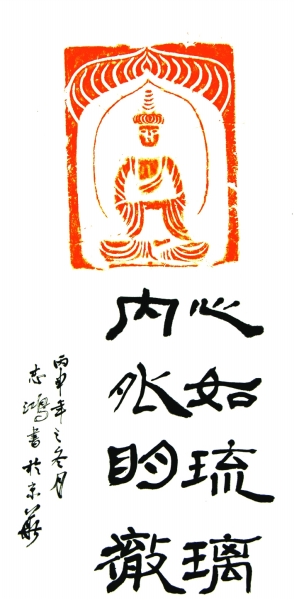 心如琉璃
内外眀徹
丙申年之冬月
志鴻書於京華